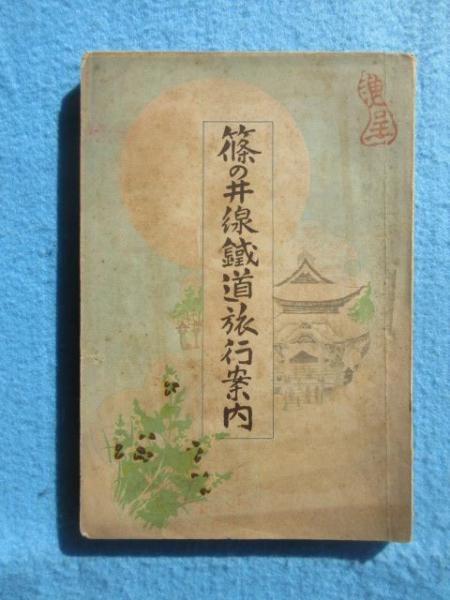 篠の井線鐵道旅行案内
進呈